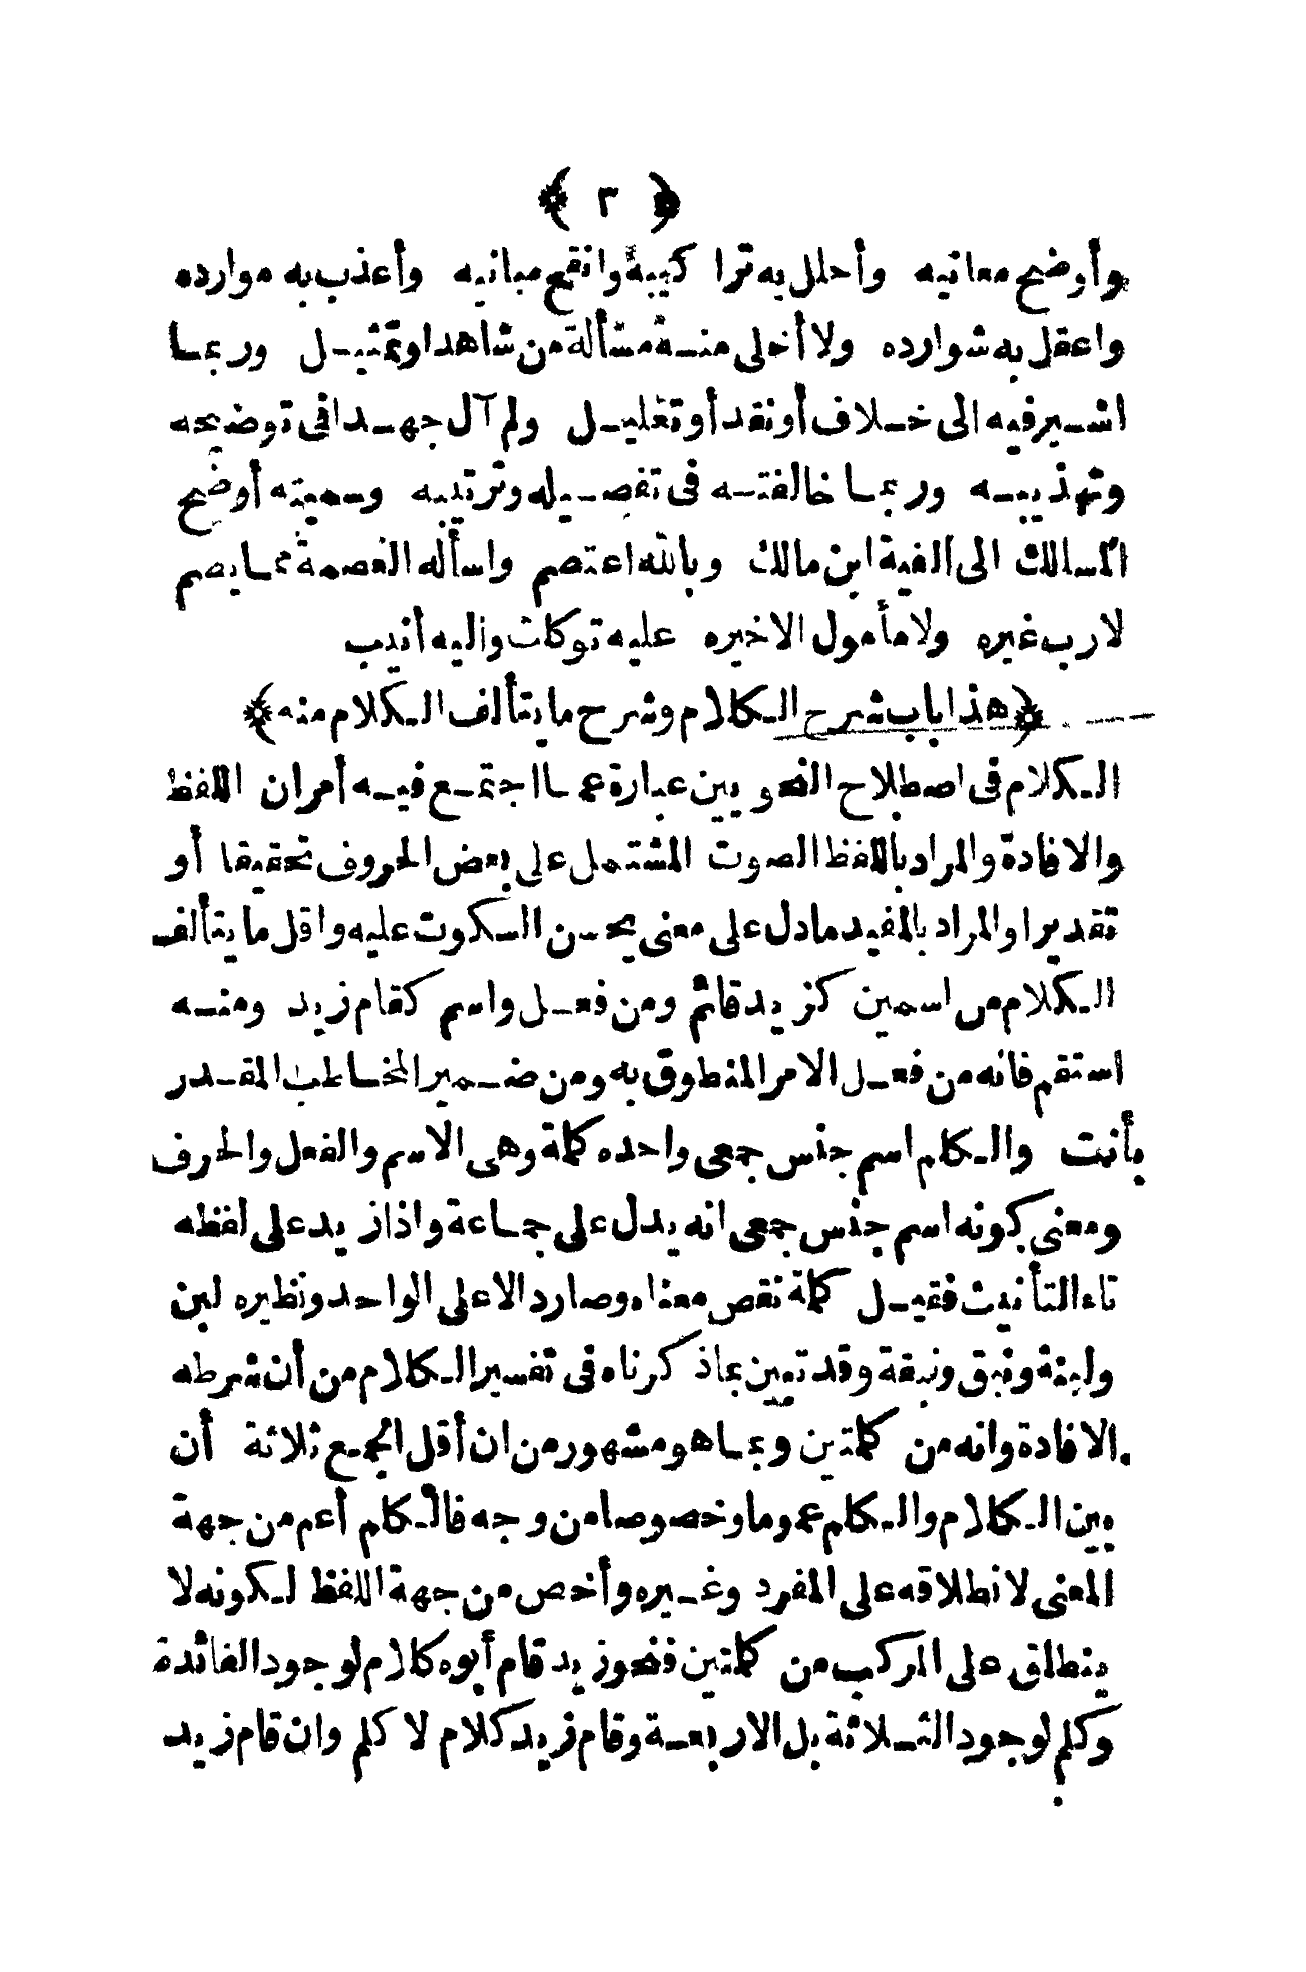 ﴿ ٣ ﴾
وأوضح معانيه وأحلل به تراكيبه وانقح مبانيه وأعذب به موارده
واعقل به شوارده ولا أخلى منه مسألة من شاهد او تمثيل وربما
اشير فيه الى خلاف أو نقد أو تعليل ولم آل جهدا فى توضيحه
وتهذيبه وربما خالفته فى تفصيله وترتيبه وسميته أوضح
المسالك الى ألفية ابن مالك وبالله اعتصم واسأله العصمة مما يصم
لا رب غيره ولا مأمول الا خيره عليه توكلت واليه أنيب
﴿ هذا باب شرح الكلام وشرح ما يتألف الكلام منه ﴾
الكلام فى اصطلاح النحويين عبارة عما اجتمع فيه أمران اللفظ
والافادة والمراد باللفظ الصوت المشتمل على بعض الحروف تحقيقا أو
تقديرا والمراد بالمفيد ما دل على معنى يحسن السكوت عليه واقل ما يتألف
الكلام من اسمين كزيد قائم ومن فعل واسم كقام زيد ومنه
استقم فانه من فعل الامر المنطوق به ومن ضمير المخاطب المقدر
بأنت والكلم اسم جنس جمعى واحده كلمة وهى الاسم والفعل والحرف
ومعنى كونه اسم جنس جمعى انه يدل على جماعة واذا زيد على لفظه
تاء التأنيث فقيل كلمة نقص معناه وصار دالا على الواحد ونظيره لبن
ولبنة ونبق ونبقة وقد تبين بما ذكرناه فى تفسير الكلام من أن شرطه
الافادة وانه من كلمتين وبما هو مشهور من ان أقل الجمع ثلاثة أن
بين الكلام والكلم عموما وخصوصا من وجه فالكلم أعم من جهة
المعنى لانطلاقه على المفرد وغيره وأخص من جهة اللفظ لكونه لا
ينطلق على المركب من كلمتين فنحو زيد قام أبوه كلام لوجود الفائدة
وكلم لوجود الثلاثة بل الاربعة وقام زيد كلام لا كلم وان قام زيد